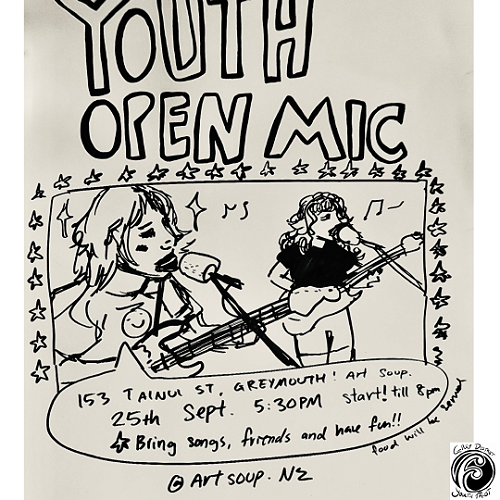 YOUTH
OPEN MIC
153 TAINUI ST, GREYMOUTH! Art Soup.
25th Sept. 5:30PM start! till 8pm
Bring songs, friends and have fun!!
food will be served
@ Artsoup.NZ